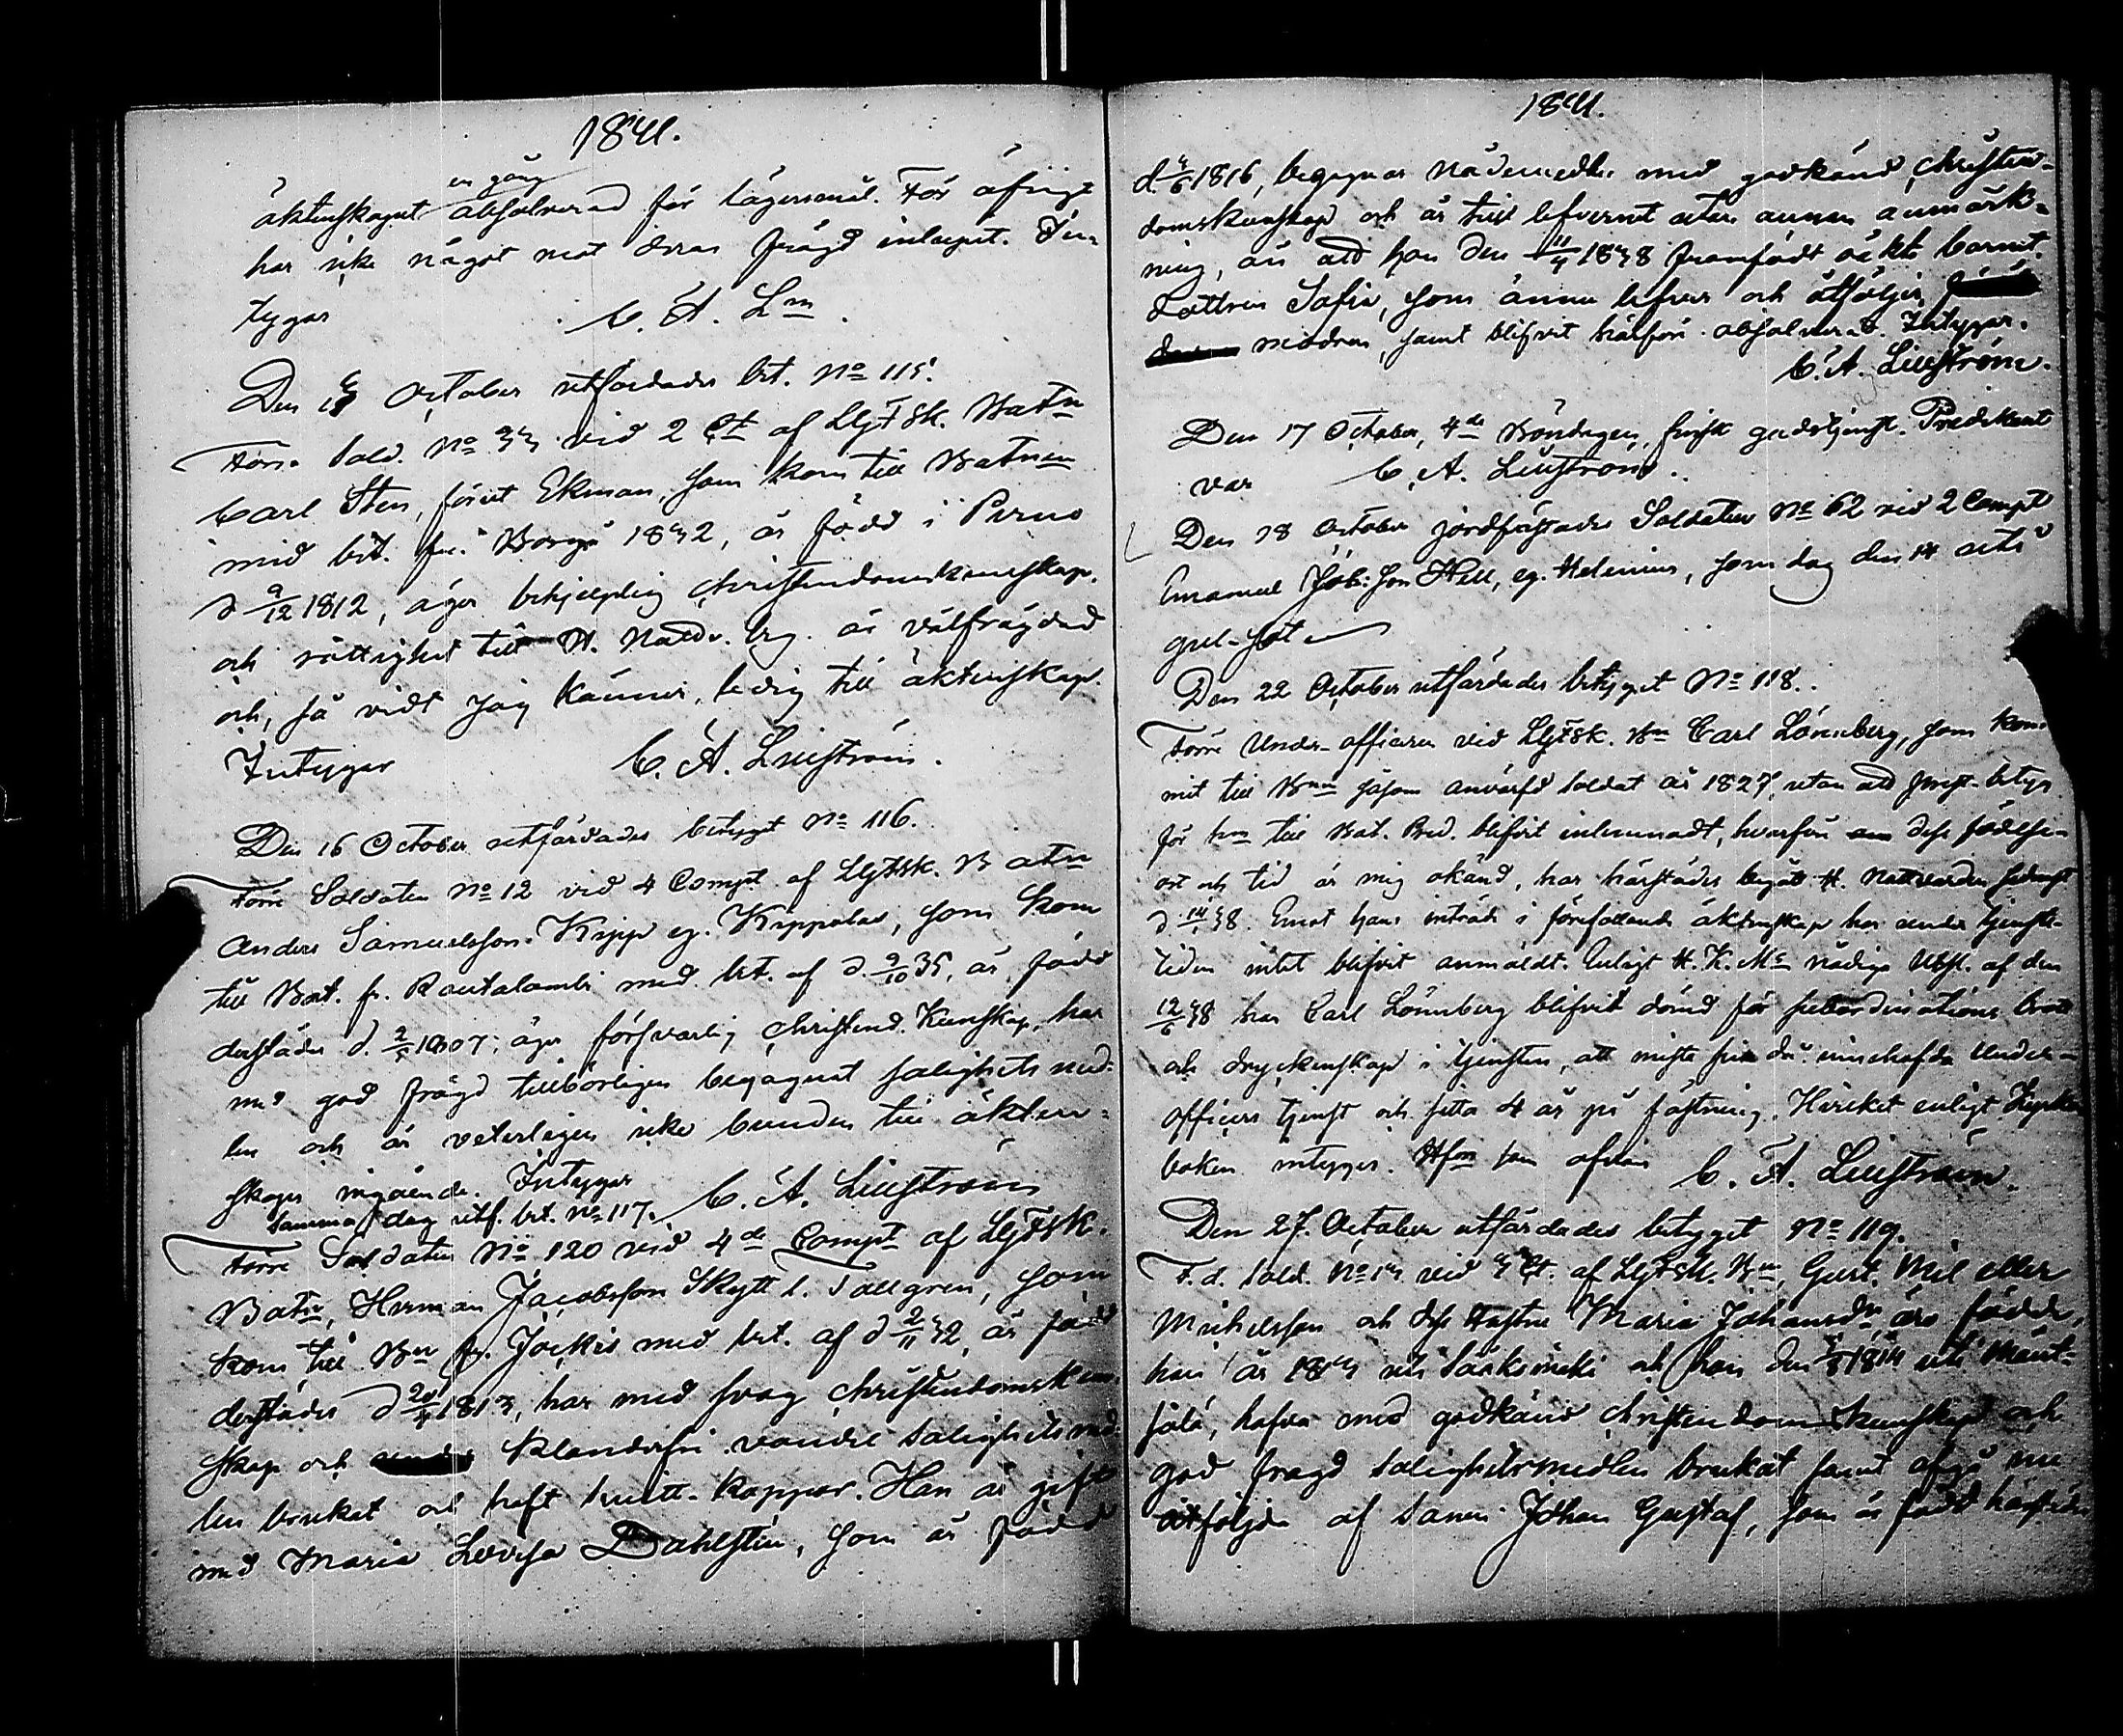 1841.
en gång
äktenskapet absolverad för lägersmål. För öfrigt
har icke något mot deras frägd inlupit. In-
tygar C. A. Lm.
Den 15 October utfärdades bet. No 115.
Förre Sold. No 33 vid 2 Ct af LGFSk. Batn
Carl Sten, förut Ekman, som kom till Batnen
med bet. fr. Borgå 1832, är född i Perno
d 9/12 1812, äger behjelplig christendomskunskap,
och rättighet till H. Nattv. beg. är välfrägdad
och, så vidt jag känner, ledig till äktenskap.
Intygar C. A. Liliström.
Den 16 October utfärdades betyget No 116.
Förre Soldaten No 12 vid 4 Compt. af LGFSk. Batn
Anders Samuelsson Kipp eg. Kippolas, som kom
till Bat. fr. Rautalambi med bet. af d. 9/10 35, är född
derstädes d. 1807; äger försvarlig Christend. Kunskap, har
med god frägd tillbörligen begagnat salighets med-
len och är veterligen icke bunden till äkten-
skaps ingående. Intygar C. A. Liliström
Samma dag utf. bet. No 117.
Förre Soldaten No 120 vid 4de Compt af LGFSk.
Batn, Herman Jacobsson Skytt l. Tallgren, som
kom till Bn fr. Jockis med bet. af d 2/11 32, är född
derstädes d 1813, har med svag christendomskun-
skap och klanderfri vandel salighetsmed-
len brukat och haft skydds-koppor. Han är gift
med Maria Lovisa Dahlsten, som är född
1841.
d 1816, begagnar nådemedlen med godkänd Christen-
domskunskap och är till lefvernet utan annan anmärk-
ning, än att hon den 1838 framfödt oäkta barnet
dottren Sofia, som ännu lefver och åtföljer
modren, samt blifvit härför absolverad. Intygar.
C. A. Liliström.
Den 17 October, 4de Böndagen, finsk gudstjenst. Predikant
var C. A. Liliström.
Den 18 October jordfästades Soldaten No 62 vid 2 Compt
Emanuel Jöb:son Hell, eg. Helenius, som dog den 14 uti
gul-sot
Den 22 October utfärdades betyget No 118.
Förre Under-officeren vid LGFSk. Bn Carl Lönnberg, som kom-
mit till Bnen såsom anvärfd soldat år 1827, utan att prest-betyg
för hm till Bat. Pred. blifvit inlemnadt, hvarföre dess födelse-
ort och tid är mig okänd, har härstädes begått H. Nattvarden sednast
d 38. Emot hans inträde i förefallande äktenskap har under tjenste-
tiden intet blifvit anmäldt. Enligt H. K. M:s nådiga Utsl. af den
12/6 38 har Carl Lönnberg blifvit dömd för subordinations brott
och dryckenskap i tjensten, att mista sin då innehafda Under-
officers tjenst och sitta 4 år på fästning. Hvilket enligt Kyrko-
boken intygar. Hfors som ofvan C. A. Liliström.
Den 27. October utfärdades betyget No 119.
F. d. Sold. No 13 vid 3 Ct. af LGFSk. Bn, Gust. Mil eller
Michelsson och dess hustru Maria Johansdr äro födde,
han år uti Sääksmäki och hon den 1814 uti Mänt-
sälä, hafva med godkänd christendomskunskap och
god frägd salighetsmedlen brukat samt afgå nu
åtföljde af sonen Johan Gustaf, som är född härstädes